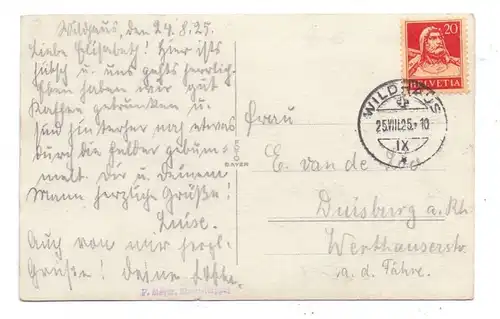 Wildhaus, den 24.8.25.
Liebe Elisabeth! Hier ists
hübsch u. uns gehts herrlich.
Eben haben wir gut
Kaffee getrunken u.
sind hinterher noch etwas
durch die Felder gebum-
melt. Dir u. Deinem
Mann herzliche Grüße!
Luise.
Auch von mir herzl.
Grüße! Deine
20
HELVETIA
WILDHAUS
25.VIII.25.10
IX
Frau
E. van de
Duisburg a. Rh.
Werthauserstr.
a. d. Fähre.